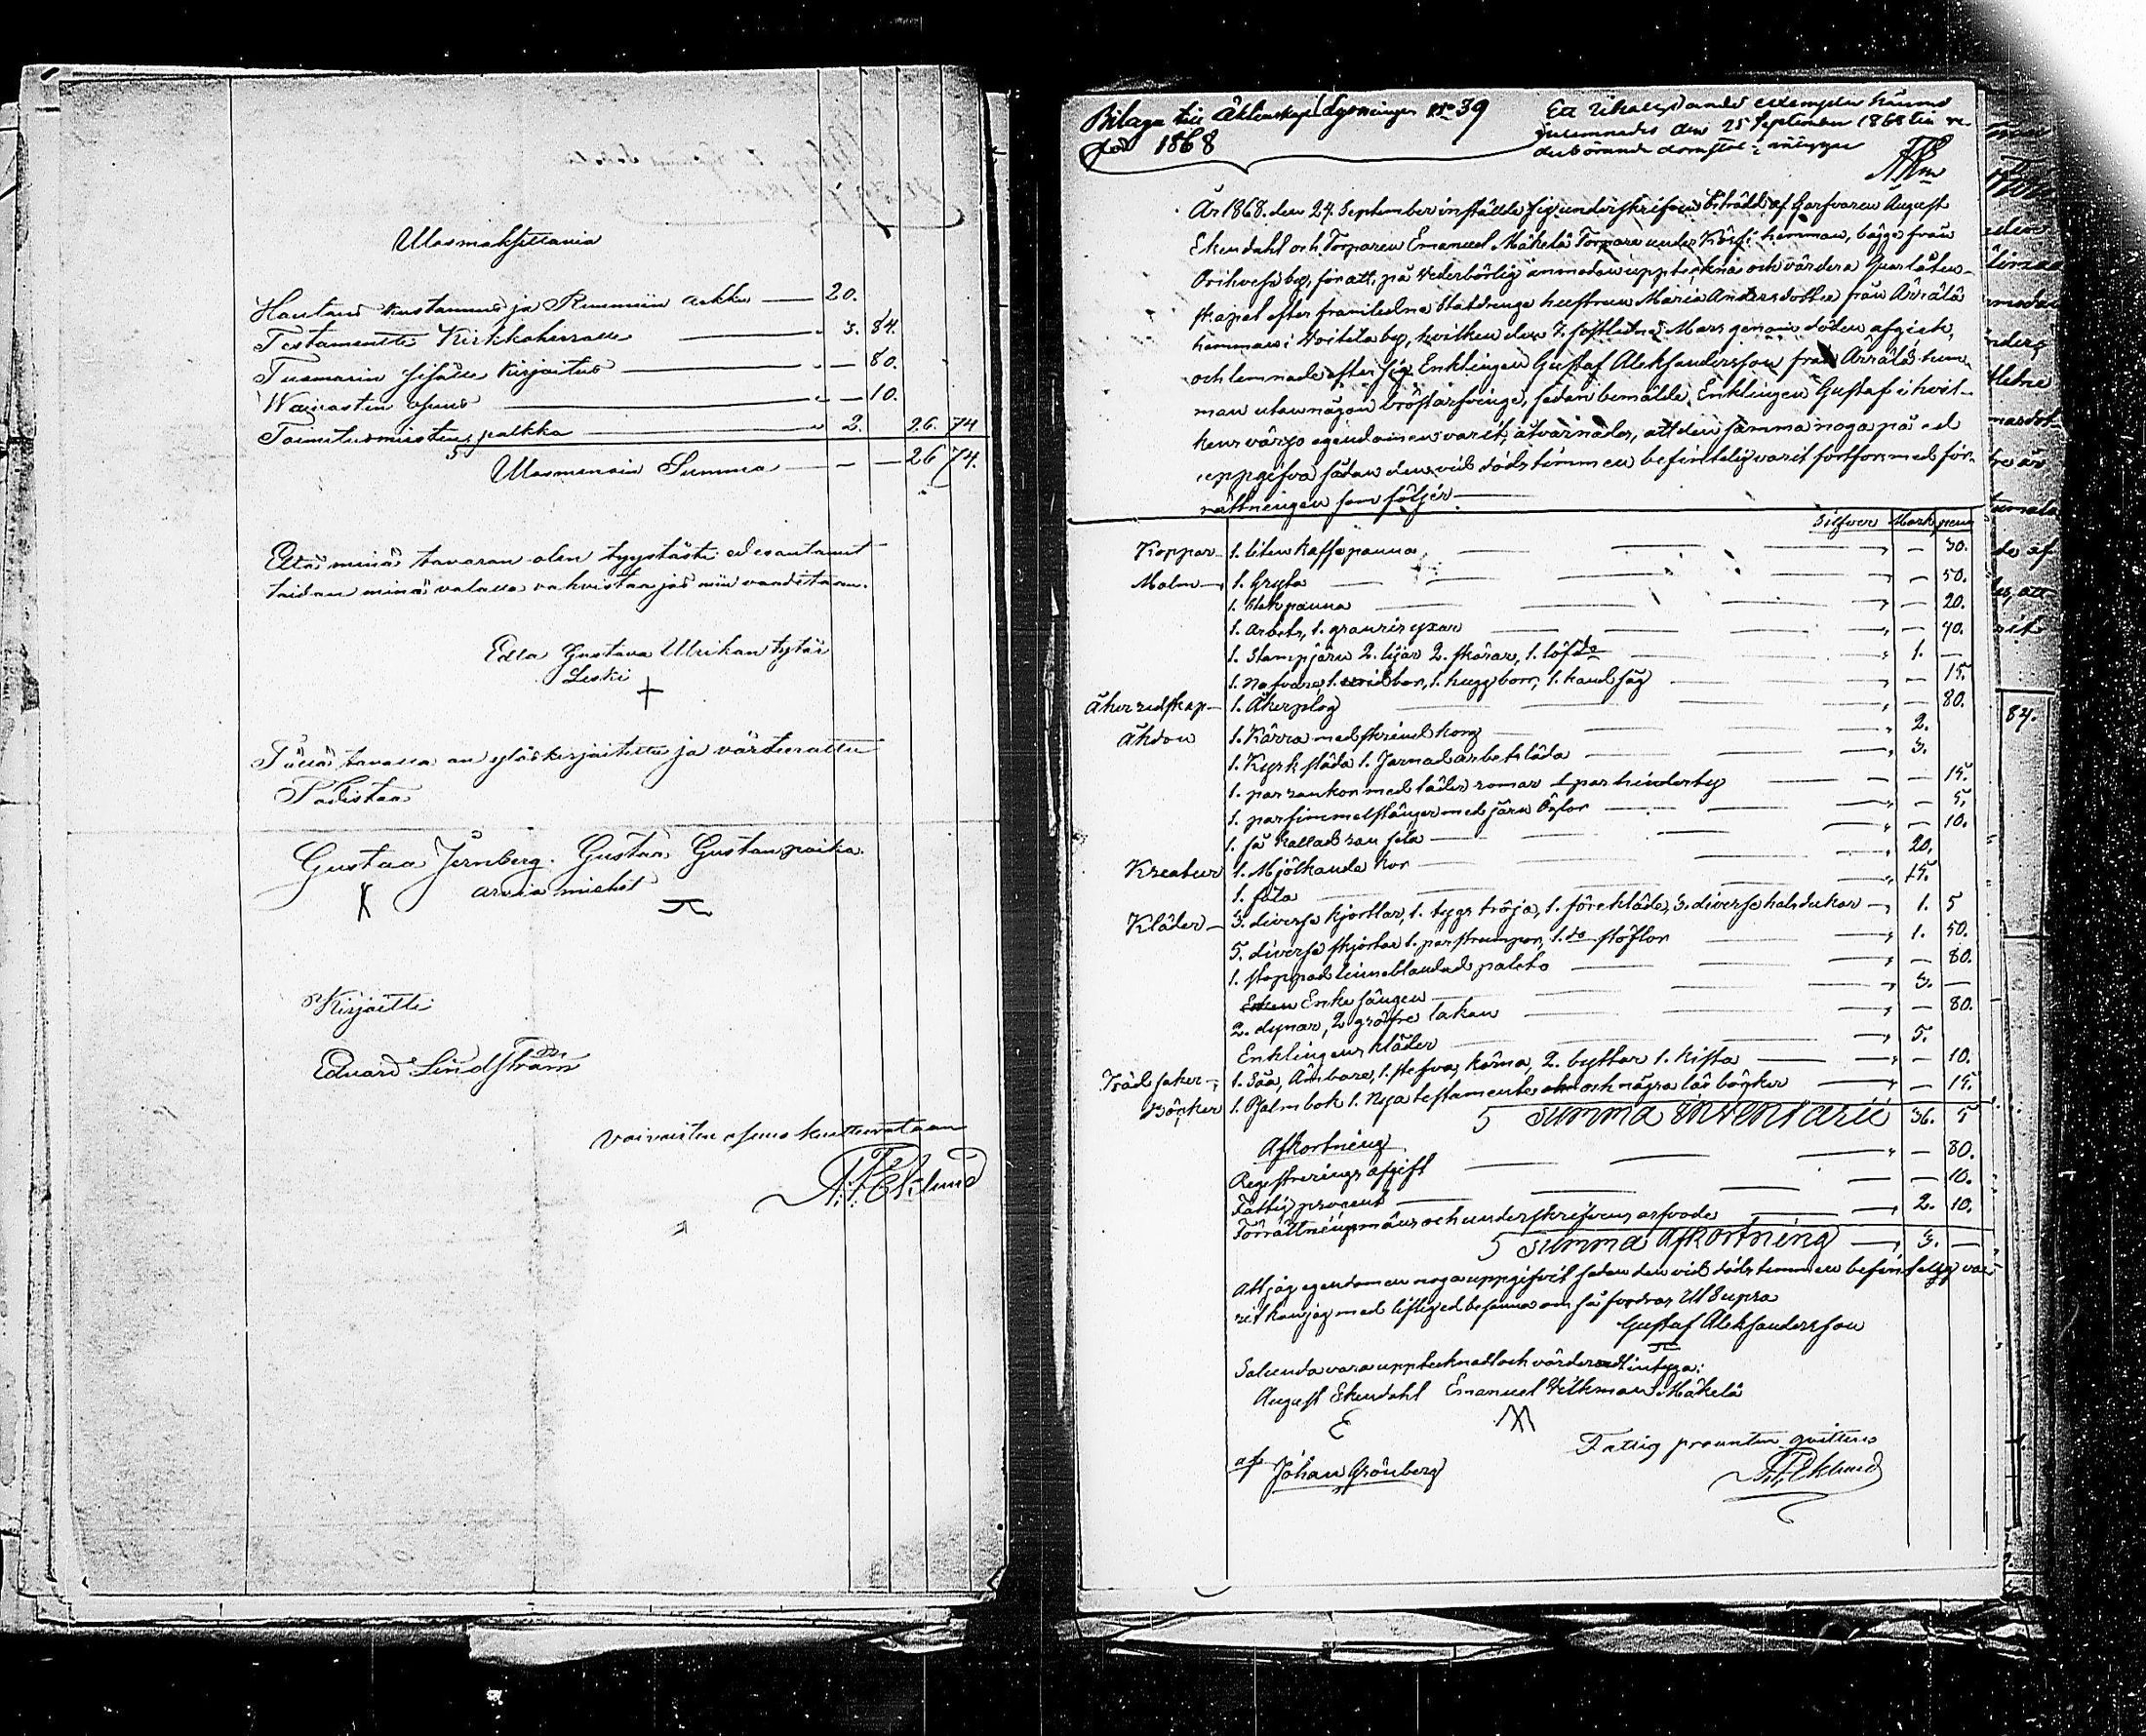 Ulosmaksettavia
Hautaus kustannus ja Ruumiin arkku — 20.
Testamentti Kirkkoherralle — „ 3. 84.
Tuomarin sisälle kirjoitus — „ — 80.
Waivasten osuus — „ — 10.
Toimitusmiesten palkka „ 2. 26. 74
Ulosmenoin Summa — — — 26 74.
Että minä tavaran olen tyystästi edesantanut
taidan minä valalla vahvistaa jos niin vaaditaan.
Edla Gustava Ulrikan tytär
Leski
+
Tällä tavalla on ylöskirjoitettu ja värteerattu
Todistaa
Gustaa Jernberg. Gustaa Gustaanpoika.
arvio miehet
Kirjoitti
Eduard Lindström
Vaivaisten osuus kuitterataan
A. F. Eklund
Bilaga till Äktenskaps Lysningen No 39
för 1868
Ett likalydande exemplar häraf
inlemnades den 25 September 1868 till ve-
derbörande domstol intygar
År 1868. den 24. September instälde sig underskrifven biträdd af Garfvaren August
Ekendahl och Torparen Emanuel Mäkelä Torpare under Körfi hemman, bägge från
Orihvesi by, för att, på Vederbörlig anmodan uppteckna och värdera Quarlåten-
skapet efter framledne Statdrengs hustrun Maria Andersdotter från Ärrälä
hemman i Voitila by, hvilken den 7. sistledne Mars genom döden afgick,
och lemnade efter sig Enklingen Gustaf Aleksandersson från Ärrälä hem
man utan någon bröstarfvinge, sedan bemälde Enklingen Gustaf i hvil-
kens värjo egendomen varit, åtvarnades, att den samma noga på ed
uppgifva sådan den vid dödstimmen befintelig varit fortfor med för-
rättningen som följer —
Silfver Mark penni
Koppar — 1. liten kaffepanna „ — 30.
Malm — 1. Gryta „ — 50.
1. Stekpanna „ — 20.
1. arbets, 1. granris yxar „ — 40.
1. Stampjärn 2. liar 2. skäror, 1. löf do „ 1. —
1. Nafvare, 1. vridbor, 1. huggborr, 1. handsåg „ — 15.
Åkerredskap — 1. Åkerplog „ — 80.
Åkdon 1. Kärra med skrind korg „ 2.
1. Kyrksläda 1. Jarnad arbetsläda „ 3.
1. par rankor med läder remar 1 par hindertyg — 15.
1. par fimmelstänger med järn öglor „ — 5.
1. så kallad ran sela „ — 10.
Kreatur 1. Mjölkande kor „ 20.
1. fåla „ 15.
Kläder — 3. diverse kjortlar, 1. tygs tröja, 1. förekläde, 3. diverse halsdukar — „ 1. 5
5. diverse skjortor 1. par strumpor, 1. do stöflor „ 1. 50.
1. stoppad linneblandad paleto „ — 80.
Enke sängen „ 3. —
2. dynor, 2 gröfre lakan „ — 80.
Enklingens kläder „ 5.
Trädsaker — 1. Såa, Ämbare, 1. stefva, kärna, 2. byttor 1. kista — „ — 10.
Böcker 1. Psalmbok 1. Nya testamente och några läs böcker „ — 15.
Summa inventarii 56. 5
Afkortning
Registrerings afgift „ — 80.
Fattig procent „ — 10.
Förrättningsmäns och underskrifvens arfvode „ 2. 10.
Summa Afkortning — „ 3. —
Att jag egendomen noga uppgifvit sådan den vid dödstimmen befintelig va-
rit kan jag med liflig ed besanna om så fordras Ut Supra
Gustaf Aleksandersson
Salunda vara upptecknad och värderadt intyga:
August Ekendahl Emanuel Vilkman Mäkelä
E M
af Johan Grönberg
Fattig procenten qvitteras
A. F. Eklund